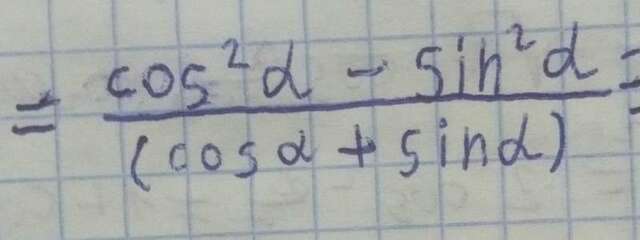 = cos²α - sin²α =
(cosα + sinα)